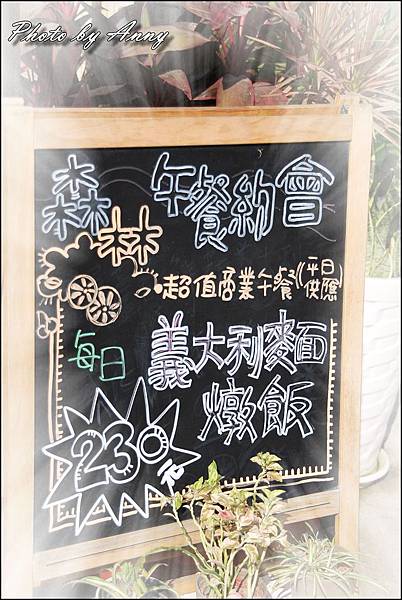 Photo by Anny
森林 午餐約會
超值商業午餐(平日供應)
每日 義大利麵
燉飯
230元